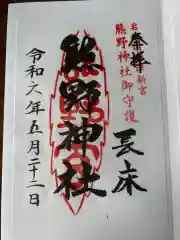 奉拝
右
新宮
熊野神社御守護
長床
熊野神社
令和六年五月二十二日